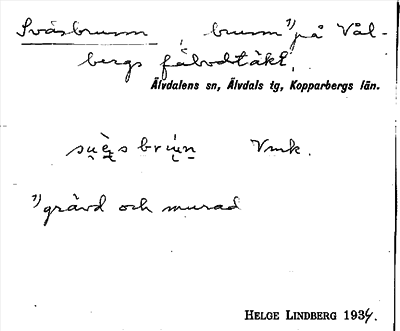 Svåsbrunn, brunn¹⁾ på Vål-
bergs fäbodtäkt,
Älvdalens sn, Älvdals tg, Kopparbergs län.
Vmk.
¹⁾ grävd och murad
HELGE LINDBERG 1934.